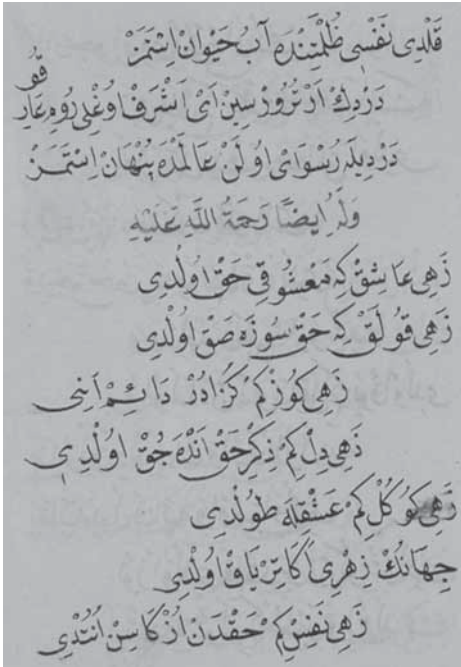 قَلْدِى نَفْسِى ظُلْمَتِنْدَه آبُ حَيْوَانْ اِسْتَمَزْ
دَرْدِكْ اَرْتُرُورْ سِينْ اَىْ اَشْرَفْ اُوغْلِى رُومِ عَارِ قُو
دَرْدِيلَه رُسْوَاىْ اُولَنْ عَالَمْدَه پِنْهَانْ اِسْتَمَزْ
وَلَهُ اَيضًا رَحْمَةُ اللَّهِ عَلَيْهِ
زَهِى عَاشِقْ كِه مَعْشُوقِى حَقْ اُولْدِى
زَهِى قُولَقْ كِه حَقْ سُوزَه صَقْ اُولْدِى
زَهِى كُوزْ كِمْ كَزَادُرْ دَائِمْ اَنِى
زَهِى دِلْ كِمْ ذِكْرِ حَقْ اَنْدَه جُقْ اُولْدِى
زَهِى كُوكُلْ كِمْ عَشْقِلَه طُولْدِى
جِهَانُكْ زِهْرِى اَكَا تِرْيَاقْ اُولْدِى
زَهِى نَفِسْ كِمْ حَقْدَنْ اُزْكَاسِنْ اُنُتْدِى